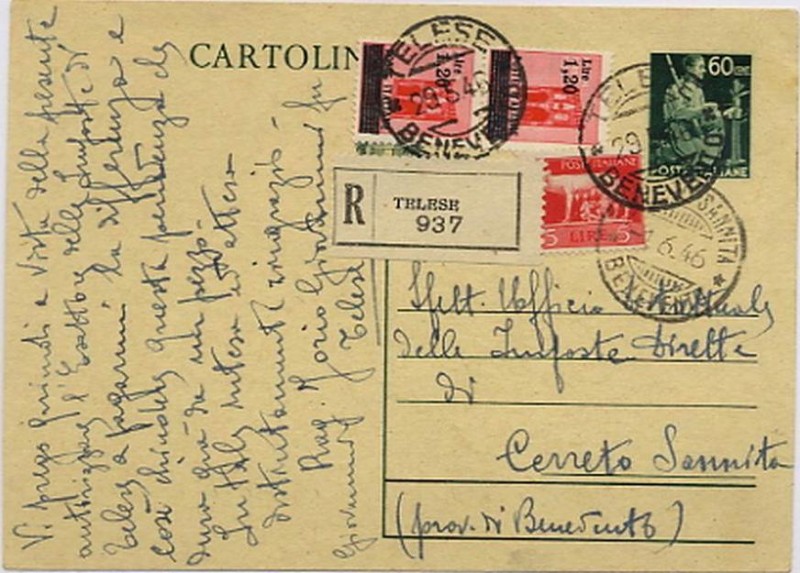 CARTOLIN
Lire
1,20
Lire
1,20
60 CENT.
TELESE
29.5.46
BENEVENTO
TELESE
29
BENEVENTO
POSTE ITALIANE
POSTE ITALIANE
5 LIRE 5
R
TELESE
937
SANNITA
6.46
BENEVENTO
Spett. Ufficio
delle Imposte Dirette
di
Cerreto Sannita
(prov. di Benevento)
Vi prego quindi a vista della presente
autorizzare l'Esattore delle Imposte di
Telese a pagarmi la differenza e
così chiudere questa pendenza che
dura già da un pezzo.
In tale intesa ed attesa
distintamente ringrazio.
Rag. Iorio Giovanni fu
Giovanni Telese